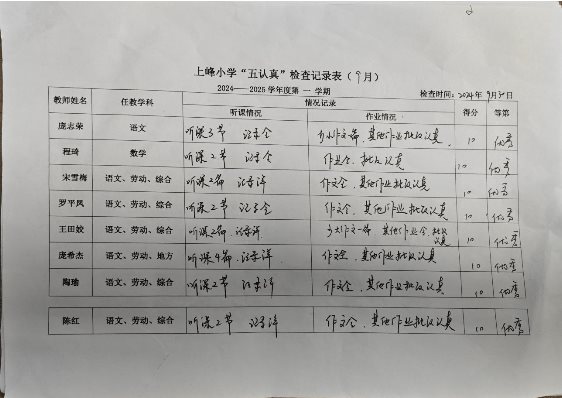 上峰小学“五认真”检查记录表（9月）
2024——2025 学年度第 一 学期 检查时间：2024年 9月30日
教师姓名 任教学科 情况记录 得分 等第
听课情况 作业情况
庞志荣 语文 听课3节 记录全 少小作文一篇，其他作业批改认真 10 优秀
程琦 数学 听课2节 记录全 作业全，批改认真 10 优秀
宋雪梅 语文、劳动、综合 听课2篇 记录详 作文全，其他作业批改认真 10 优秀
罗平凤 语文、劳动、综合 听课2节 记录全 作文全，其他作业批改认真 10 优秀
王田姣 语文、劳动、综合 听课2篇 记录详 少大作文一篇，其他作业全，批改认真 10 优秀
庞希杰 语文、劳动、地方 听课4篇 记录详 作文全，其他作业批改认真 10 优秀
陶瑜 语文、劳动、综合 听课2节 记录详 作文全，其他作业批改认真 10 优秀
陈红 语文、劳动、综合 听课2节 记录详 作文全，其他作业批改认真 10 优秀